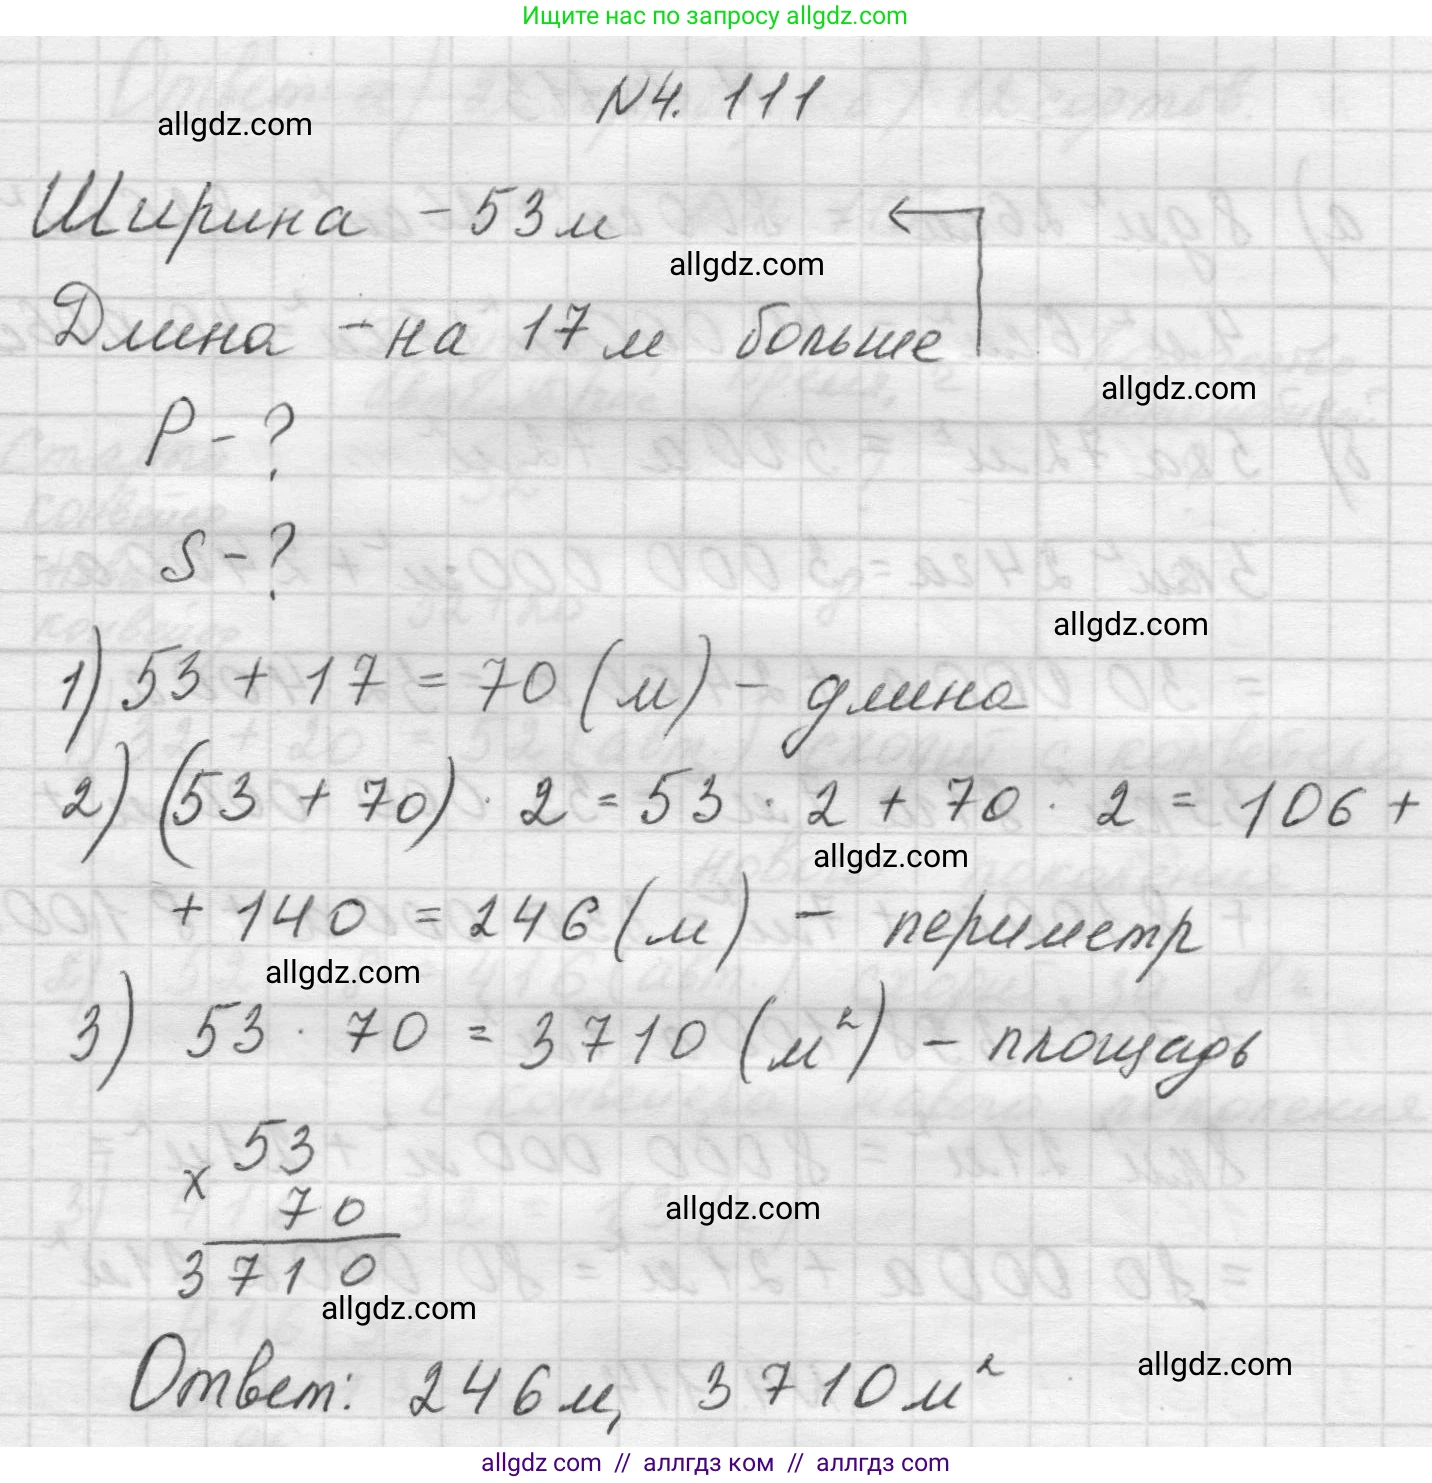 Ищите нас по запросу allgdz.com
N4.111
allgdz.com
Ширина - 53 м
allgdz.com
Длина - на 17 м больше
allgdz.com
P - ?
S - ?
allgdz.com
1) 53 + 17 = 70 (м) - длина
2) (53 + 70) · 2 = 53 · 2 + 70 · 2 = 106 +
allgdz.com
+ 140 = 246 (м) - периметр
allgdz.com
3) 53 · 70 = 3710 (м²) - площадь
53
x
70
allgdz.com
3710
allgdz.com
Ответ: 246 м, 3710 м²
allgdz.com
allgdz com // аллгдз ком // аллгдз com